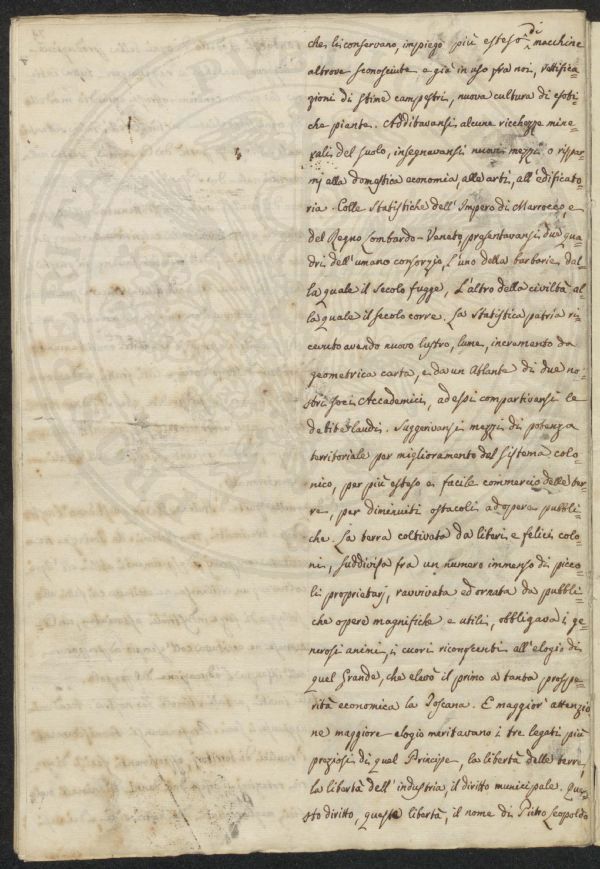 che li conservano, impiego più esteso di macchine
altrove sconosciute e già in uso fra noi, rettifica=
zioni di stime campestri, nuova cultura di esoti=
che piante. Additavansi alcune ricchezze mine=
rali del suolo, insegnavansi nuovi mezzi o rispar=
mj alla domestica economia, alle arti, all'edificato=
ria. Colle Statistiche dell'Impero di Marrocco, e
del Regno Lombardo-Veneto presentavansi due qua=
dri dell'umano consorzio, l'uno della barbarie dal=
la quale il Secolo fugge, l'altro della civiltà al=
la quale il secolo corre. La Statistica patria ri=
cevuto avendo nuovo lustro, lume, incremento da
geometrica carta, e da un Atlante di due no=
stri socj Accademici, ad essi compartivansi le
debite laudi. Suggerivansi mezzi di potenza
territoriale per miglioramento del sistema colo=
nico, per più esteso e facile commercio delle ter=
re, per diminuiti ostacoli ad opere pubbli=
che. La terra coltivata da liberi e felici colo=
ni, suddivisa fra un numero immenso di picco=
li proprietarj, ravvivata ed ornata da pubbli=
che opere magnifiche e utili, obbligava i ge=
nerosi animi, i cuori riconoscenti all'elogio di
quel Grande, che elevò il primo a tanta prospe=
rità economica la Toscana. E maggior' attenzio=
ne maggiore elogio meritavano i tre legati più
preziosi di quel Principe, la libertà delle terre,
la libertà dell'industria, il diritto municipale. Que=
sto diritto, queste libertà, il nome di Pietro Leopoldo